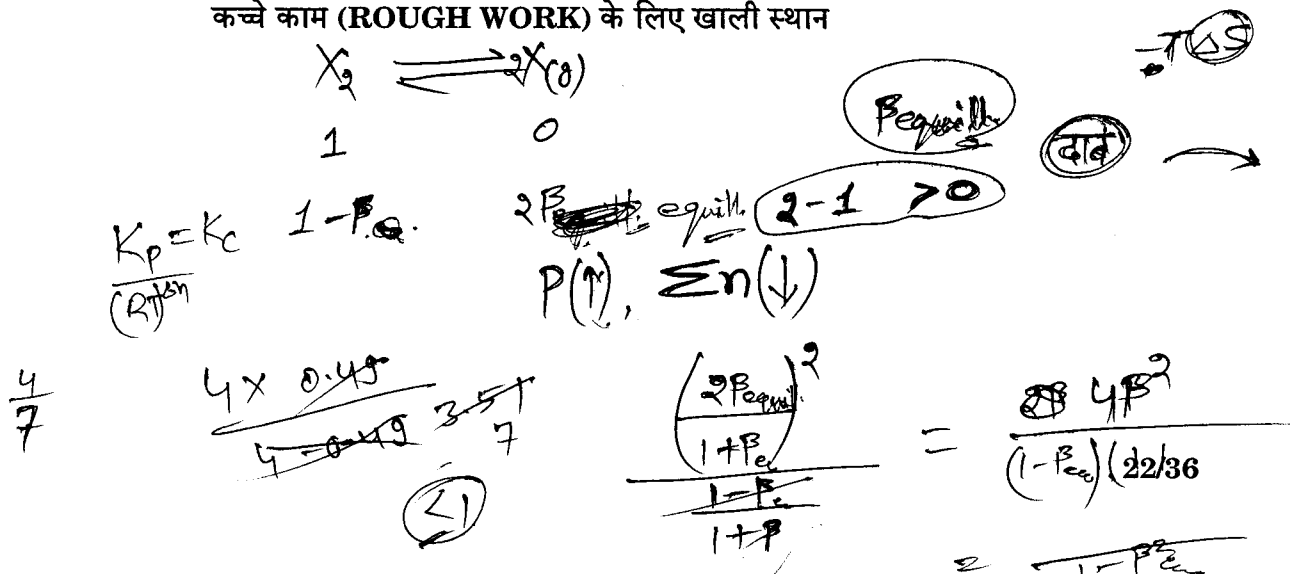 कच्चे काम (ROUGH WORK) के लिए खाली स्थान
X₂ ⇌ 2X(g)
-TΔS
1 0
βequill.
दाब →
Kp = Kc
(RT)^Δn
1-βe. 2β equill. 2-1 >0
P(↑), Σn(↓)
4/7
4 × 0.49
4-0.49 3.51
7
<1
(2βequill. / 1+βe)²
1-βe
1+β
= 4β²
(1-βe)(
22/36
=